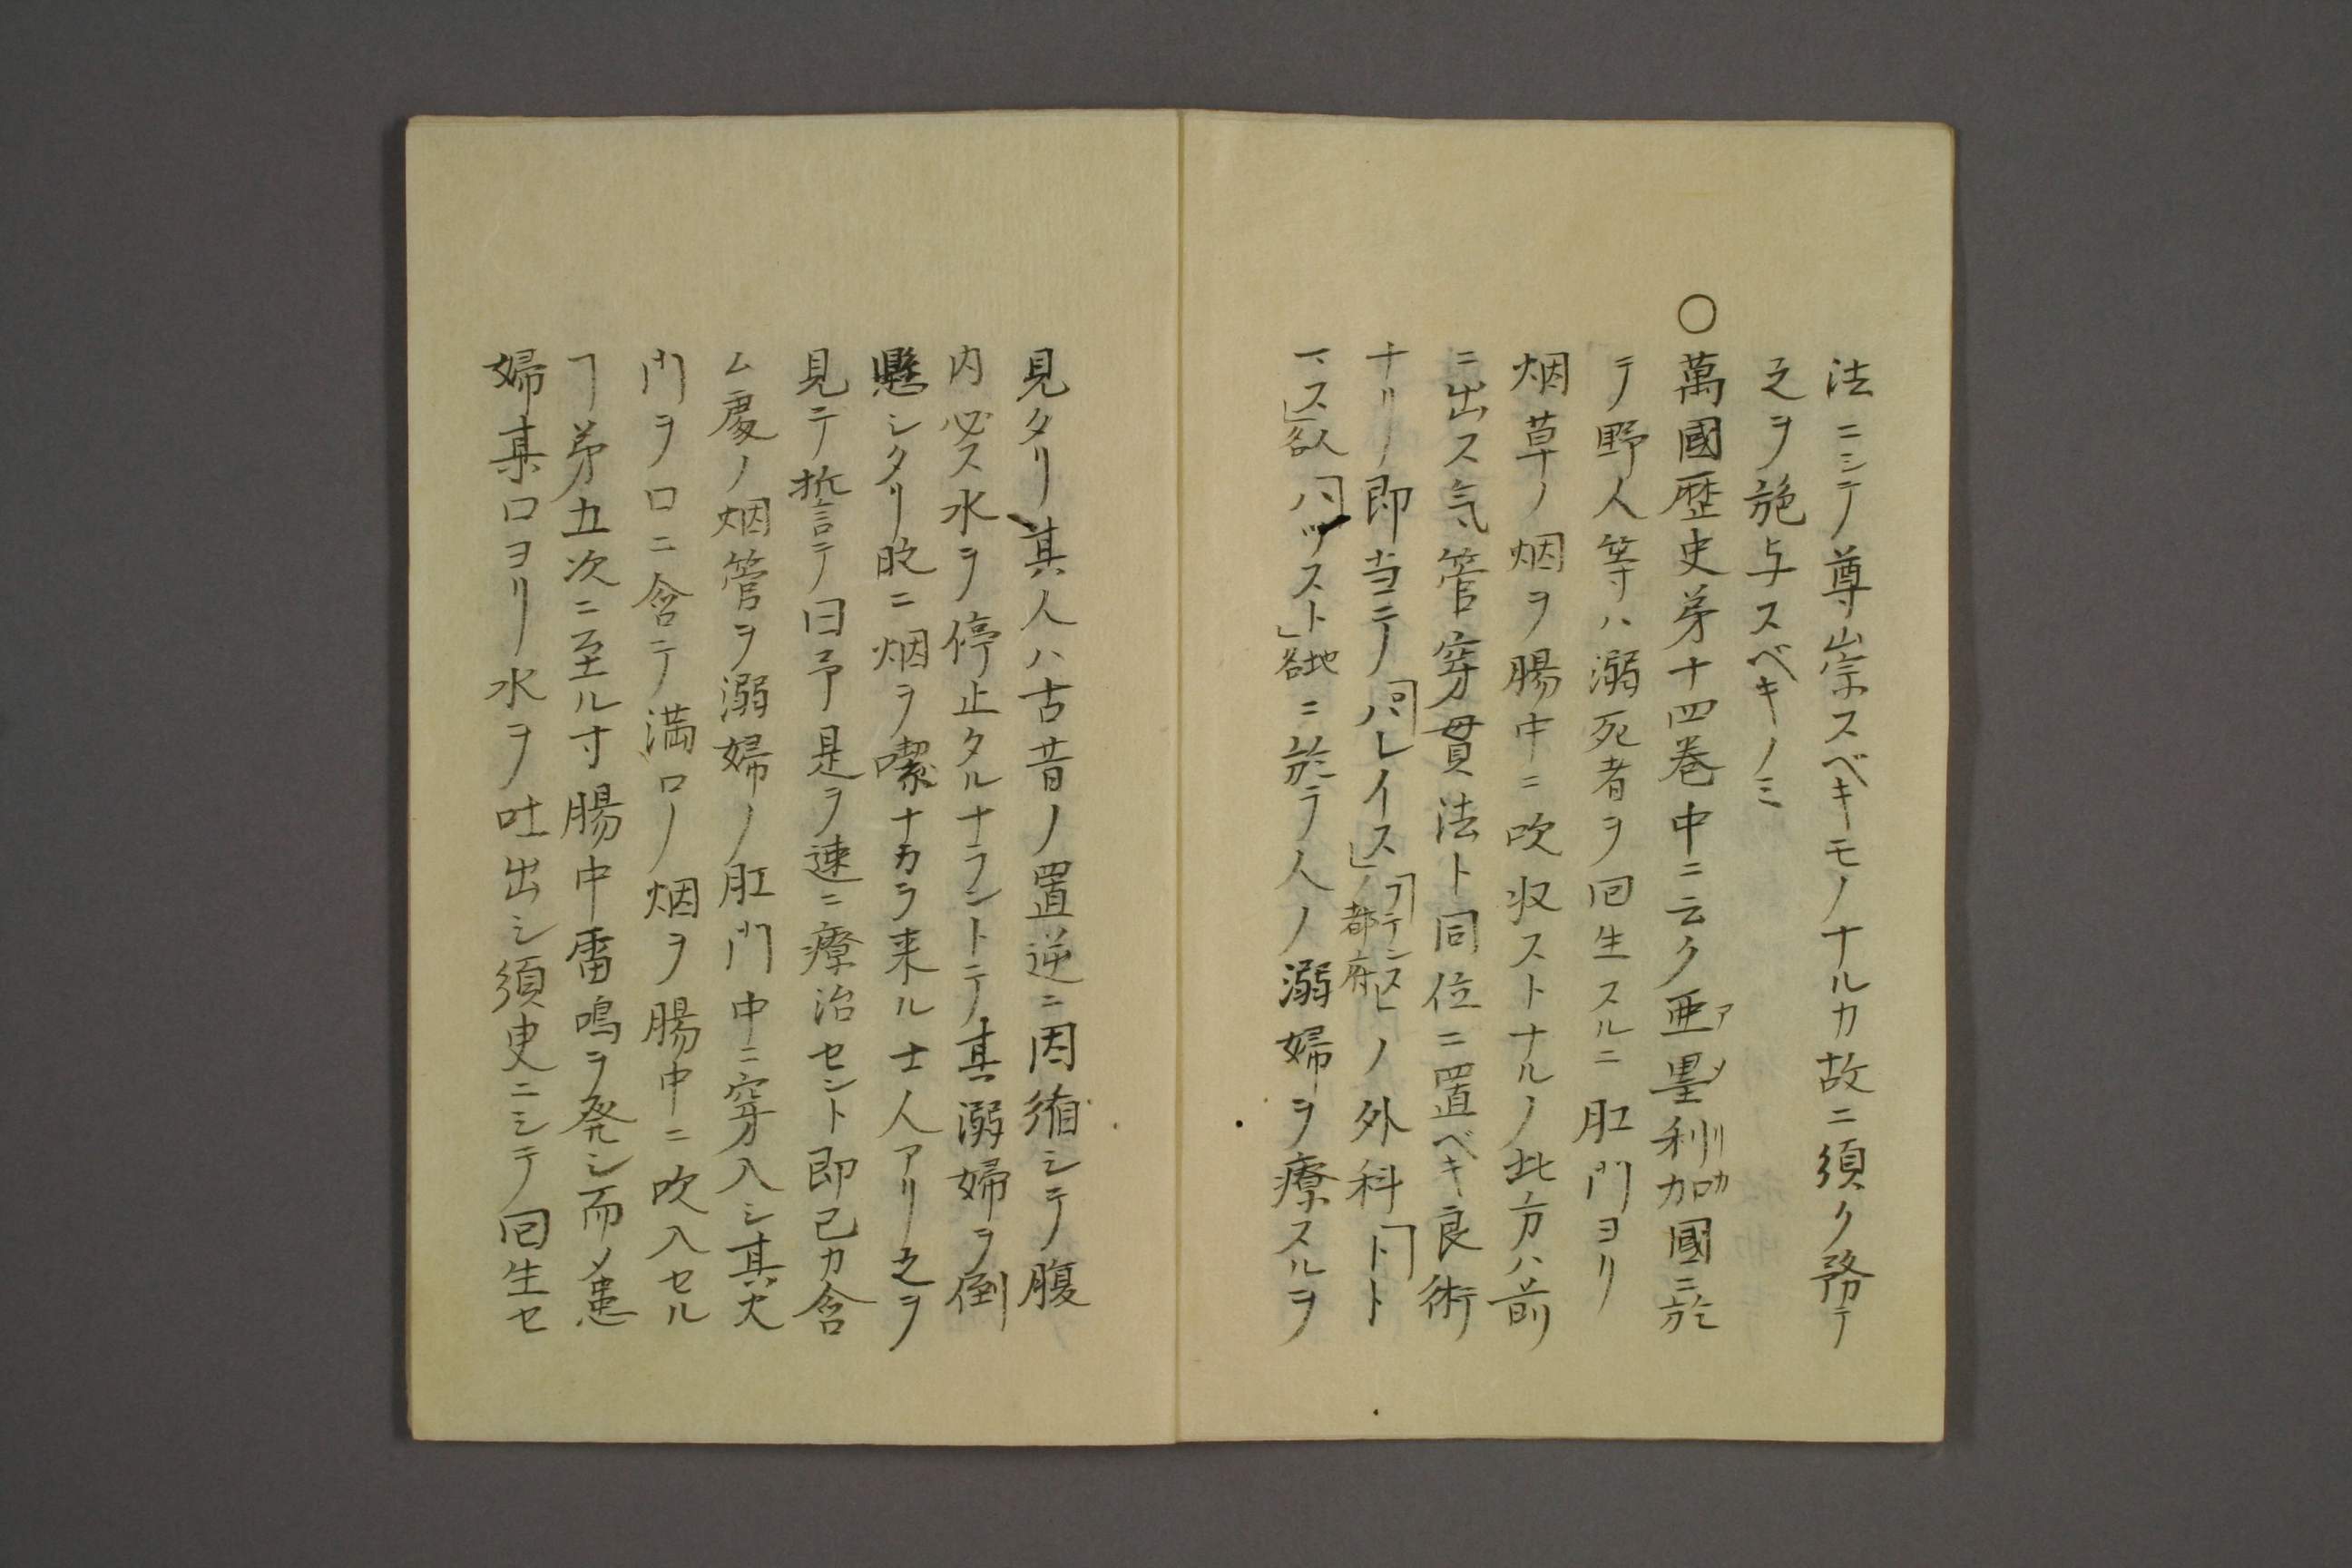 法ニシテ尊崇スベキモノナルカ故ニ須ク務テ
之ヲ施与スベキノミ
〇萬國歴史苐十四巻中ニ云ク亜墨利加國ニ於
アメリカ
テ野人等ハ溺死者ヲ回生スルニ肛門ヨリ
烟草ノ烟ヲ腸中ニ吹収ストナルノ此方ハ前
ニ出ス気管穿貫法ト同位ニ置ベキ良術
ナリノ即当テノ「パレイス」ノ都府ノ外科「トト
マス」人名「パツスト」地名ニ於テ人ノ溺婦ヲ療スルヲ
見タリ其人ハ古昔ノ置逆ニ因循シテ腹
内必ス水ヲ停止タルナラントテ其溺婦ヲ倒
懸シタリ時ニ烟ヲ喫ナカラ来ル士人アリ之ヲ
見テ誓テ曰予是ヲ速ニ療治セント即己カ含
ム處ノ烟管ヲ溺婦ノ肛門中ニ穿入シ其火
門ヲ口ニ含テ満口ノ烟ヲ腸中ニ吹入セル
ヿ苐五次ニ至ル寸腸中雷鳴ヲ発シ而〆患
婦某口ヨリ水ヲ吐出シ須臾ニシテ回生セ